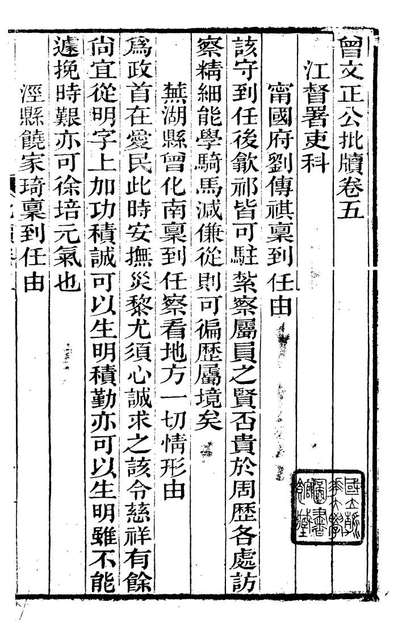 曾文正公批牘卷五
江督署吏科
甯國府劉傳祺稟到任由
該守到任後歙祁皆可駐紮察屬員之賢否貴於周歷各處訪
察精細能學騎馬減傔從則可徧歷屬境矣
蕪湖縣曾化南稟到任察看地方一切情形由
爲政首在愛民此時安撫災黎尤須心誠求之該令慈祥有餘
尙宜從明字上加功積誠可以生明積勤亦可以生明雖不能
遽挽時艱亦可徐培元氣也
涇縣饒家琦稟到任由